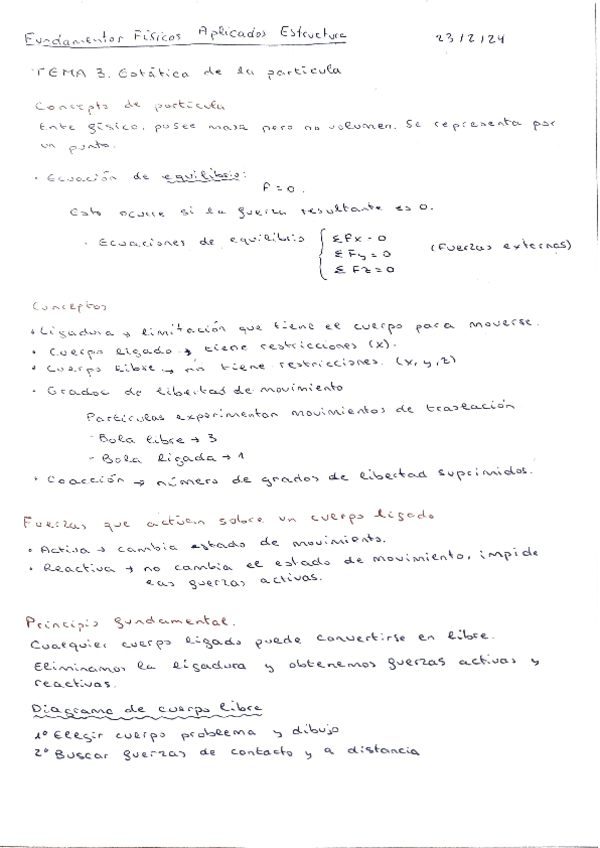 Fundamentos Físicos Aplicados Estructura 23/2/24
TEMA 3. Estática de la partícula
Concepto de partícula
Ente físico, posee masa pero no volumen. Se representa por
un punto.
· Ecuación de equilibrio:
F = 0.
Esto ocurre si la fuerza resultante es 0.
· Ecuaciones de equilibrio { ΣFx = 0
ΣFy = 0 (Fuerzas externas)
ΣFz = 0
Conceptos
· Ligadura → limitación que tiene el cuerpo para moverse.
· Cuerpo ligado → tiene restricciones (x).
· Cuerpo libre → no tiene restricciones. (x, y, z)
· Grados de libertad de movimiento
Partículas experimentan movimientos de traslación
- Bola libre → 3
- Bola ligada → 1
· Coacción → número de grados de libertad suprimidos.
Fuerzas que actúan sobre un cuerpo ligado
· Activa → cambia estado de movimiento.
· Reactiva → no cambia el estado de movimiento, impide
las fuerzas activas.
Principio fundamental.
Cualquier cuerpo ligado puede convertirse en libre.
Eliminamos la ligadura y obtenemos fuerzas activas y
reactivas.
Diagrama de cuerpo libre
1º Elegir cuerpo problema y dibujo
2º Buscar fuerzas de contacto y a distancia